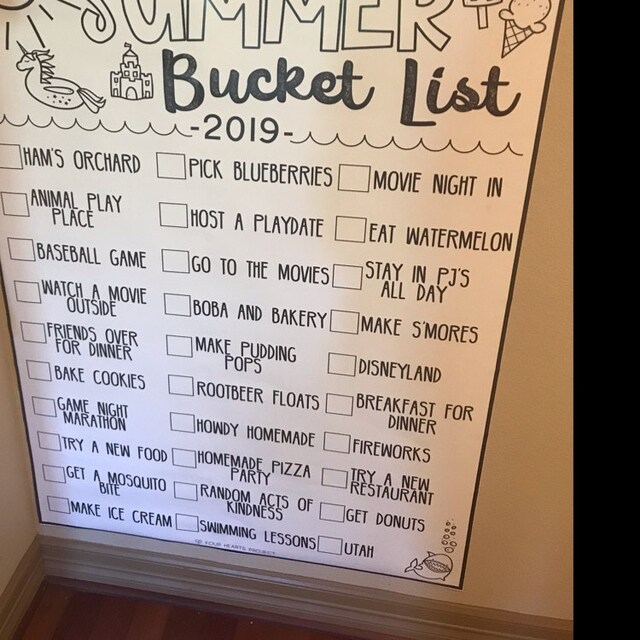 SUMMER
Bucket List
-2019-
HAM'S ORCHARD
PICK BLUEBERRIES
MOVIE NIGHT IN
ANIMAL PLAY
PLACE
HOST A PLAYDATE
EAT WATERMELON
BASEBALL GAME
GO TO THE MOVIES
STAY IN PJ'S
ALL DAY
WATCH A MOVIE
OUTSIDE
BOBA AND BAKERY
MAKE S'MORES
FRIENDS OVER
FOR DINNER
MAKE PUDDING
POPS
DISNEYLAND
BAKE COOKIES
ROOTBEER FLOATS
BREAKFAST FOR
DINNER
GAME NIGHT
MARATHON
HOWDY HOMEMADE
FIREWORKS
TRY A NEW FOOD
HOMEMADE PIZZA
PARTY
TRY A NEW
RESTAURANT
GET A MOSQUITO
BITE
RANDOM ACTS OF
KINDNESS
GET DONUTS
MAKE ICE CREAM
SWIMMING LESSONS
UTAH
HEARTS PROJECT